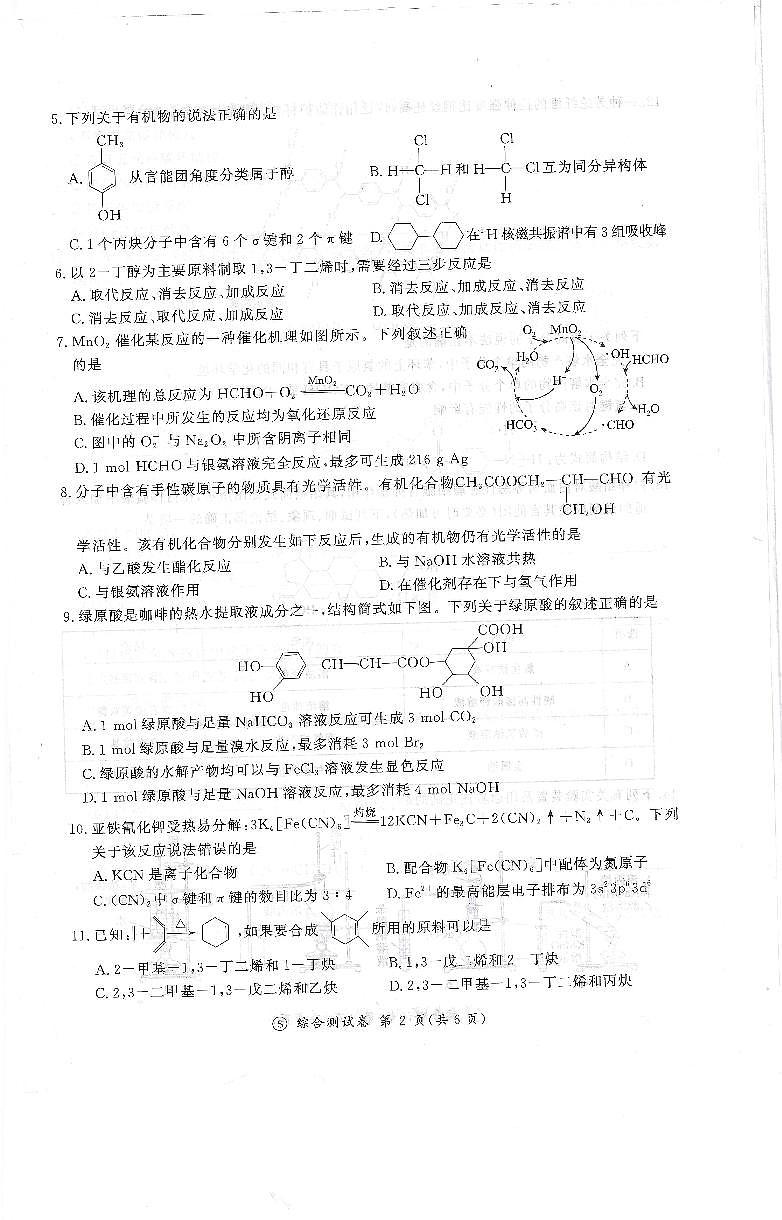 5.下列关于有机物的说法正确的是
CH₃
OH
A. 从官能团角度分类属于醇
Cl
B. H—C—H和H—C—Cl互为同分异构体
Cl
Cl
H
C.1个丙炔分子中含有6个σ键和2个π键 D. 在¹H核磁共振谱中有3组吸收峰
6.以2-丁醇为主要原料制取1,3-丁二烯时,需要经过三步反应是
A.取代反应、消去反应、加成反应 B.消去反应、加成反应、消去反应
C.消去反应、取代反应、加成反应 D.取代反应、加成反应、消去反应
7.MnO₂催化某反应的一种催化机理如图所示。下列叙述正确
的是
O₂ MnO₂
CO₂ H₂O ·OH HCHO
H⁺ O₂⁻
HCO₃⁻ ·CHO H₂O
A.该机理的总反应为HCHO+O₂ MnO₂ CO₂+H₂O
B.催化过程中所发生的反应均为氧化还原反应
C.图中的O₂⁻与Na₂O₂中所含阴离子相同
D.1 mol HCHO与银氨溶液完全反应,最多可生成216 g Ag
8.分子中含有手性碳原子的物质具有光学活性。有机化合物CH₃COOCH₂—CH—CHO 有光
CH₂OH
学活性。该有机化合物分别发生如下反应后,生成的有机物仍有光学活性的是
A.与乙酸发生酯化反应 B.与NaOH水溶液共热
C.与银氨溶液作用 D.在催化剂存在下与氢气作用
9.绿原酸是咖啡的热水提取液成分之一,结构简式如下图。下列关于绿原酸的叙述正确的是
COOH
OH
HO CH=CH—COO
HO HO OH
A.1 mol绿原酸与足量NaHCO₃溶液反应可生成3 mol CO₂
B.1 mol绿原酸与足量溴水反应,最多消耗3 mol Br₂
C.绿原酸的水解产物均可以与FeCl₃溶液发生显色反应
D.1 mol绿原酸与足量NaOH溶液反应,最多消耗4 mol NaOH
10.亚铁氰化钾受热易分解:3K₄[Fe(CN)₆] 灼烧 12KCN+Fe₃C+2(CN)₂↑+N₂↑+C。下列
关于该反应说法错误的是
A.KCN是离子化合物 B.配合物K₄[Fe(CN)₆]中配体为氮原子
C.(CN)₂中σ键和π键的数目比为3∶4 D.Fe²⁺的最高能层电子排布为3s²3p⁶3d⁶
11.已知: ‖+ △ ,如果要合成 所用的原料可以是
A.2-甲基-1,3-丁二烯和1-丁炔 B.1,3-戊二烯和2-丁炔
C.2,3-二甲基-1,3-戊二烯和乙炔 D.2,3-二甲基-1,3-丁二烯和丙炔
Ⓢ 综合测试卷 第2页(共6页)